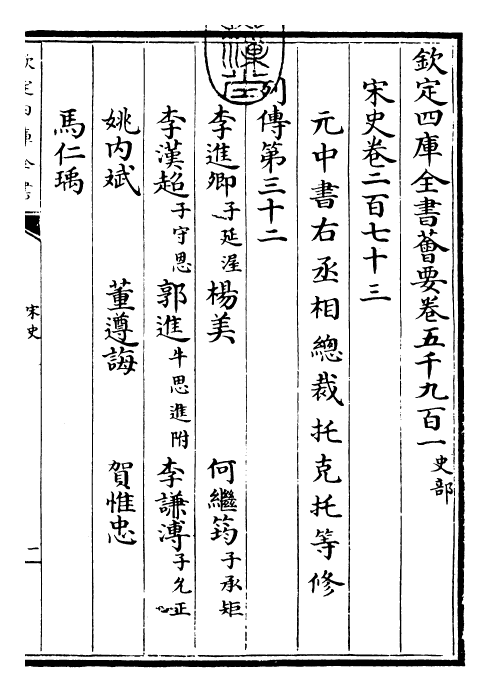 欽定四庫全書薈要卷五千九百一 史部
宋史卷二百七十三
元中書右丞相總裁托克托等修
列傳第三十二
李進卿 子延渥 楊美 何繼筠 子承矩
李漢超 子守恩 郭進 牛思進附 李謙溥 子允正
姚內斌 董遵誨 賀惟忠
馬仁瑀
欽定四庫全書
宋史